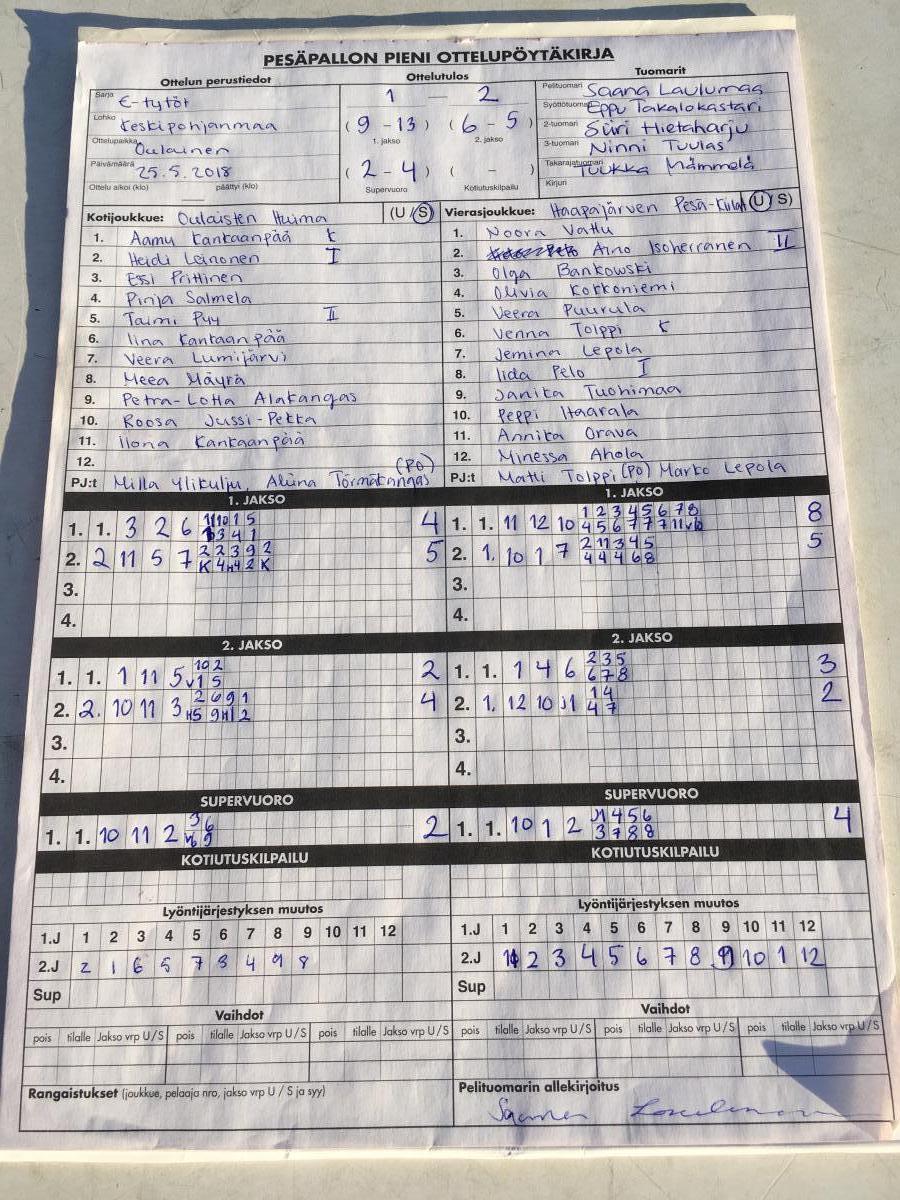 PESÄPALLON PIENI OTTELUPÖYTÄKIRJA
Ottelun perustiedot
Sarja E-tytöt
Lohko Keskipohjanmaa
Ottelupaikka Oulainen
Päivämäärä 25.5.2018
Ottelu alkoi (klo) päättyi (klo)
Ottelutulos
1 — 2
(9 - 13) (6 - 5)
1. jakso 2. jakso
(2 - 4) ( - )
Supervuoro Kotiutuskilpailu
Tuomarit
Pelituomari Saana Laulumaa
Syöttötuomari Eppu Takalokastari
2-tuomari Siiri Hietaharju
3-tuomari Ninni Tuulas
Takarajatuomari Tuukka Mämmelä
Kirjuri
Kotijoukkue: Oulaisten Huima (U / S)
1. Aamu Kankaanpää K
2. Heidi Leinonen I
3. Essi Prittinen
4. Pinja Salmela
5. Taimi Puy II
6. Iina Kantaanpää
7. Veera Lumijärvi
8. Meea Mäyrä
9. Petra-Lotta Alakangas
10. Roosa Jussi-Pekka
11. Ilona Kankaanpää
12.
PJ:t Milla Ylikulju, Aliina Törmäkangas (PO)
Vierasjoukkue: Haapajärven Pesä-Kiilat (U / S)
1. Noora Vattu
2. Aino Isoherranen II
3. Olga Bankowski
4. Olivia Korkoniemi
5. Veera Puurula
6. Venna Tolppi K
7. Jemina Lepola
8. Iida Pelo I
9. Janita Tuohimaa
10. Peppi Haarala
11. Annika Orava
12. Minessa Ahola
PJ:t Matti Tolppi (PO) Marko Lepola
1. JAKSO
1. 1. 3 2 6 4
2. 2 11 5 7 2 2 3 9 2 5
3.
4.
1. JAKSO
1. 1. 11 12 10 1 2 3 4 5 6 7 8 8
2. 1. 10 1 7 2 11 3 4 5 5
4 4 4 6 8
3.
4.
2. JAKSO
1. 1. 1 11 5 10 2 2
2. 2. 10 11 3 2 6 9 1 4
3.
4.
2. JAKSO
1. 1. 1 4 6 2 3 5 3
6 7 8
2. 1. 12 10 1 4 2
4 7
3.
4.
SUPERVUORO
1. 1. 10 11 2 3 6 2
SUPERVUORO
1. 1. 10 1 2 4
3 7 8 8
KOTIUTUSKILPAILU
KOTIUTUSKILPAILU
Lyöntijärjestyksen muutos
1.J 1 2 3 4 5 6 7 8 9 10 11 12
2.J 2 1 6 5 7 3 4 9 8
Sup
Lyöntijärjestyksen muutos
1.J 1 2 3 4 5 6 7 8 9 10 11 12
2.J 2 3 4 5 6 7 8 9 10 1 12
Sup
Vaihdot
pois tilalle Jakso vrp U / S pois tilalle Jakso vrp U / S pois tilalle Jakso vrp U / S
Vaihdot
pois tilalle Jakso vrp U / S pois tilalle Jakso vrp U / S pois tilalle Jakso vrp U / S
Rangaistukset (joukkue, pelaaja nro, jakso vrp U / S ja syy)
Pelituomarin allekirjoitus